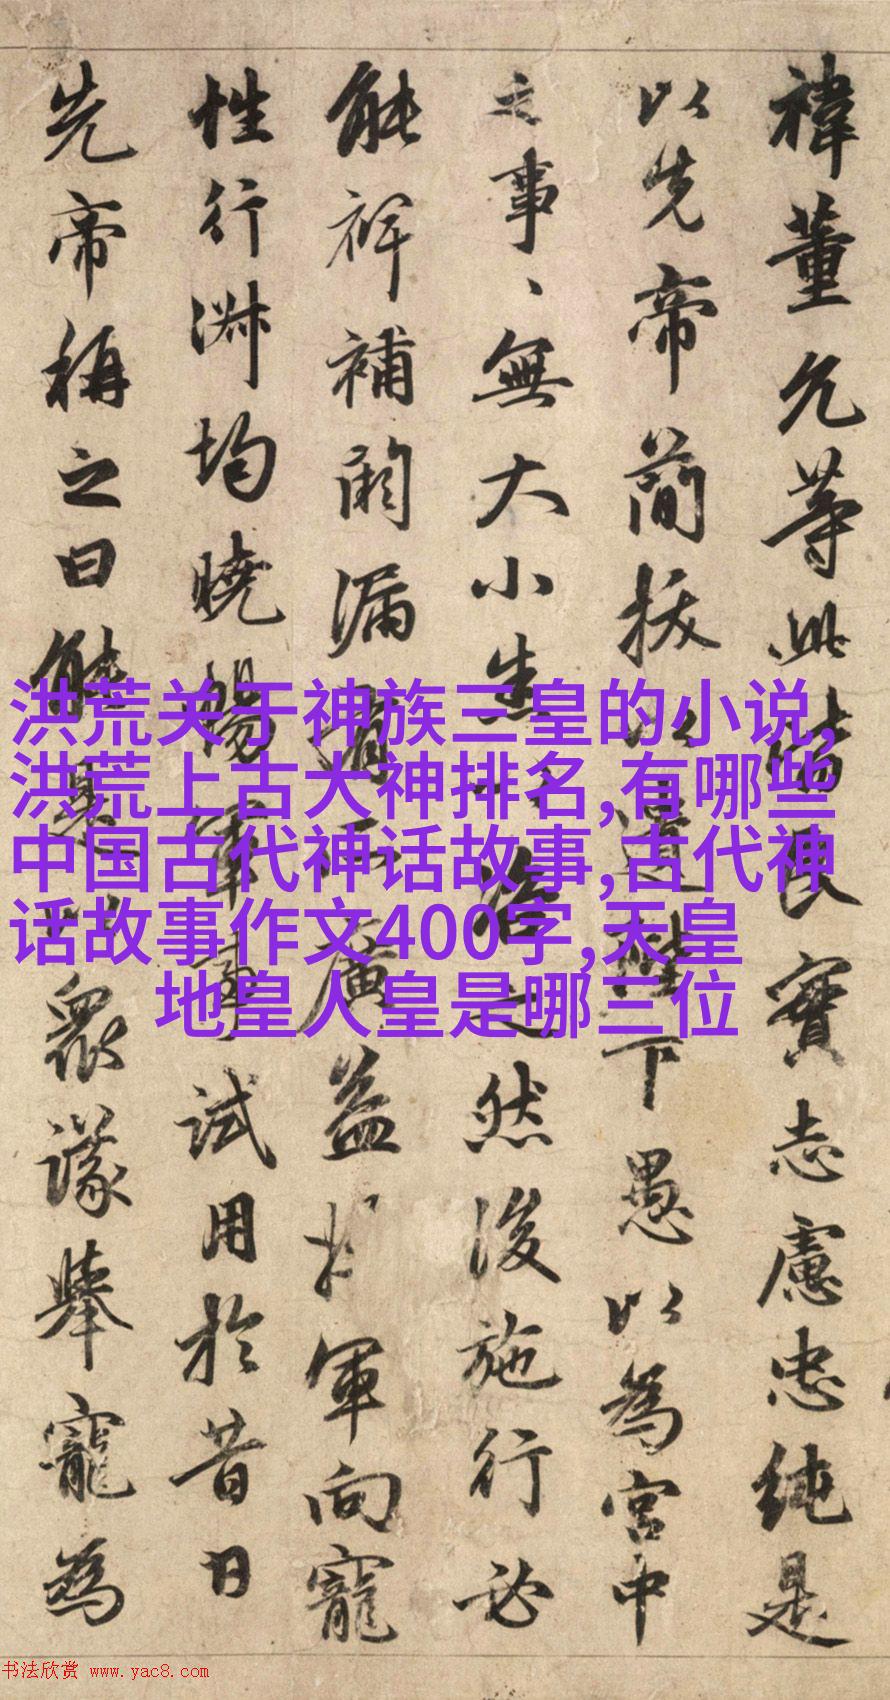 禕董允等此皆良實志慮忠純是
以先帝簡拔以遺陛下愚以為宮中
之事、無大小悉以咨之然後施行必
能裨補闕漏有所廣益將軍向寵
性行淑均曉暢軍事試用於昔日
先帝稱之曰能是以眾議舉寵為
洪荒关于神族三皇的小说,
洪荒上古大神排名,有哪些
中国古代神话故事,古代神
话故事作文400字,天皇
地皇人皇是哪三位
书法欣赏 www.yac8.com